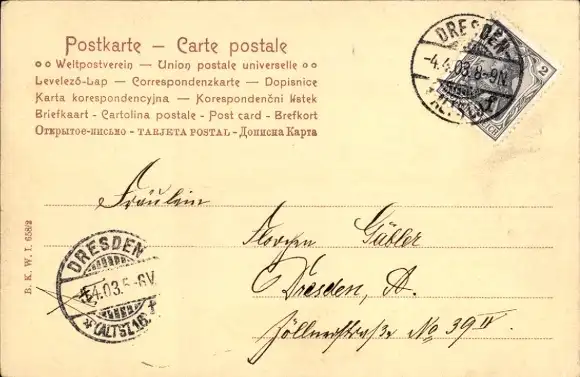 Postkarte – Carte postale
Weltpostverein – Union postale universelle
Levelező-Lap – Correspondenzkarte – Dopisnice
Karta korespondencyjna – Korespondenční lístek
Briefkaart - Cartolina postale - Post card - Brefkort
Открытое-письмо – TARJETA POSTAL – Дописна Карта
DRESDEN
-4.4.03.8-9N.
2
Fräulein
Gäbler
Dresden, A.
Zöllnerstraße No 39 II
DRESDEN
4.03.5-6V
*(ALTST.)16*
B. K. W. I. 658/2